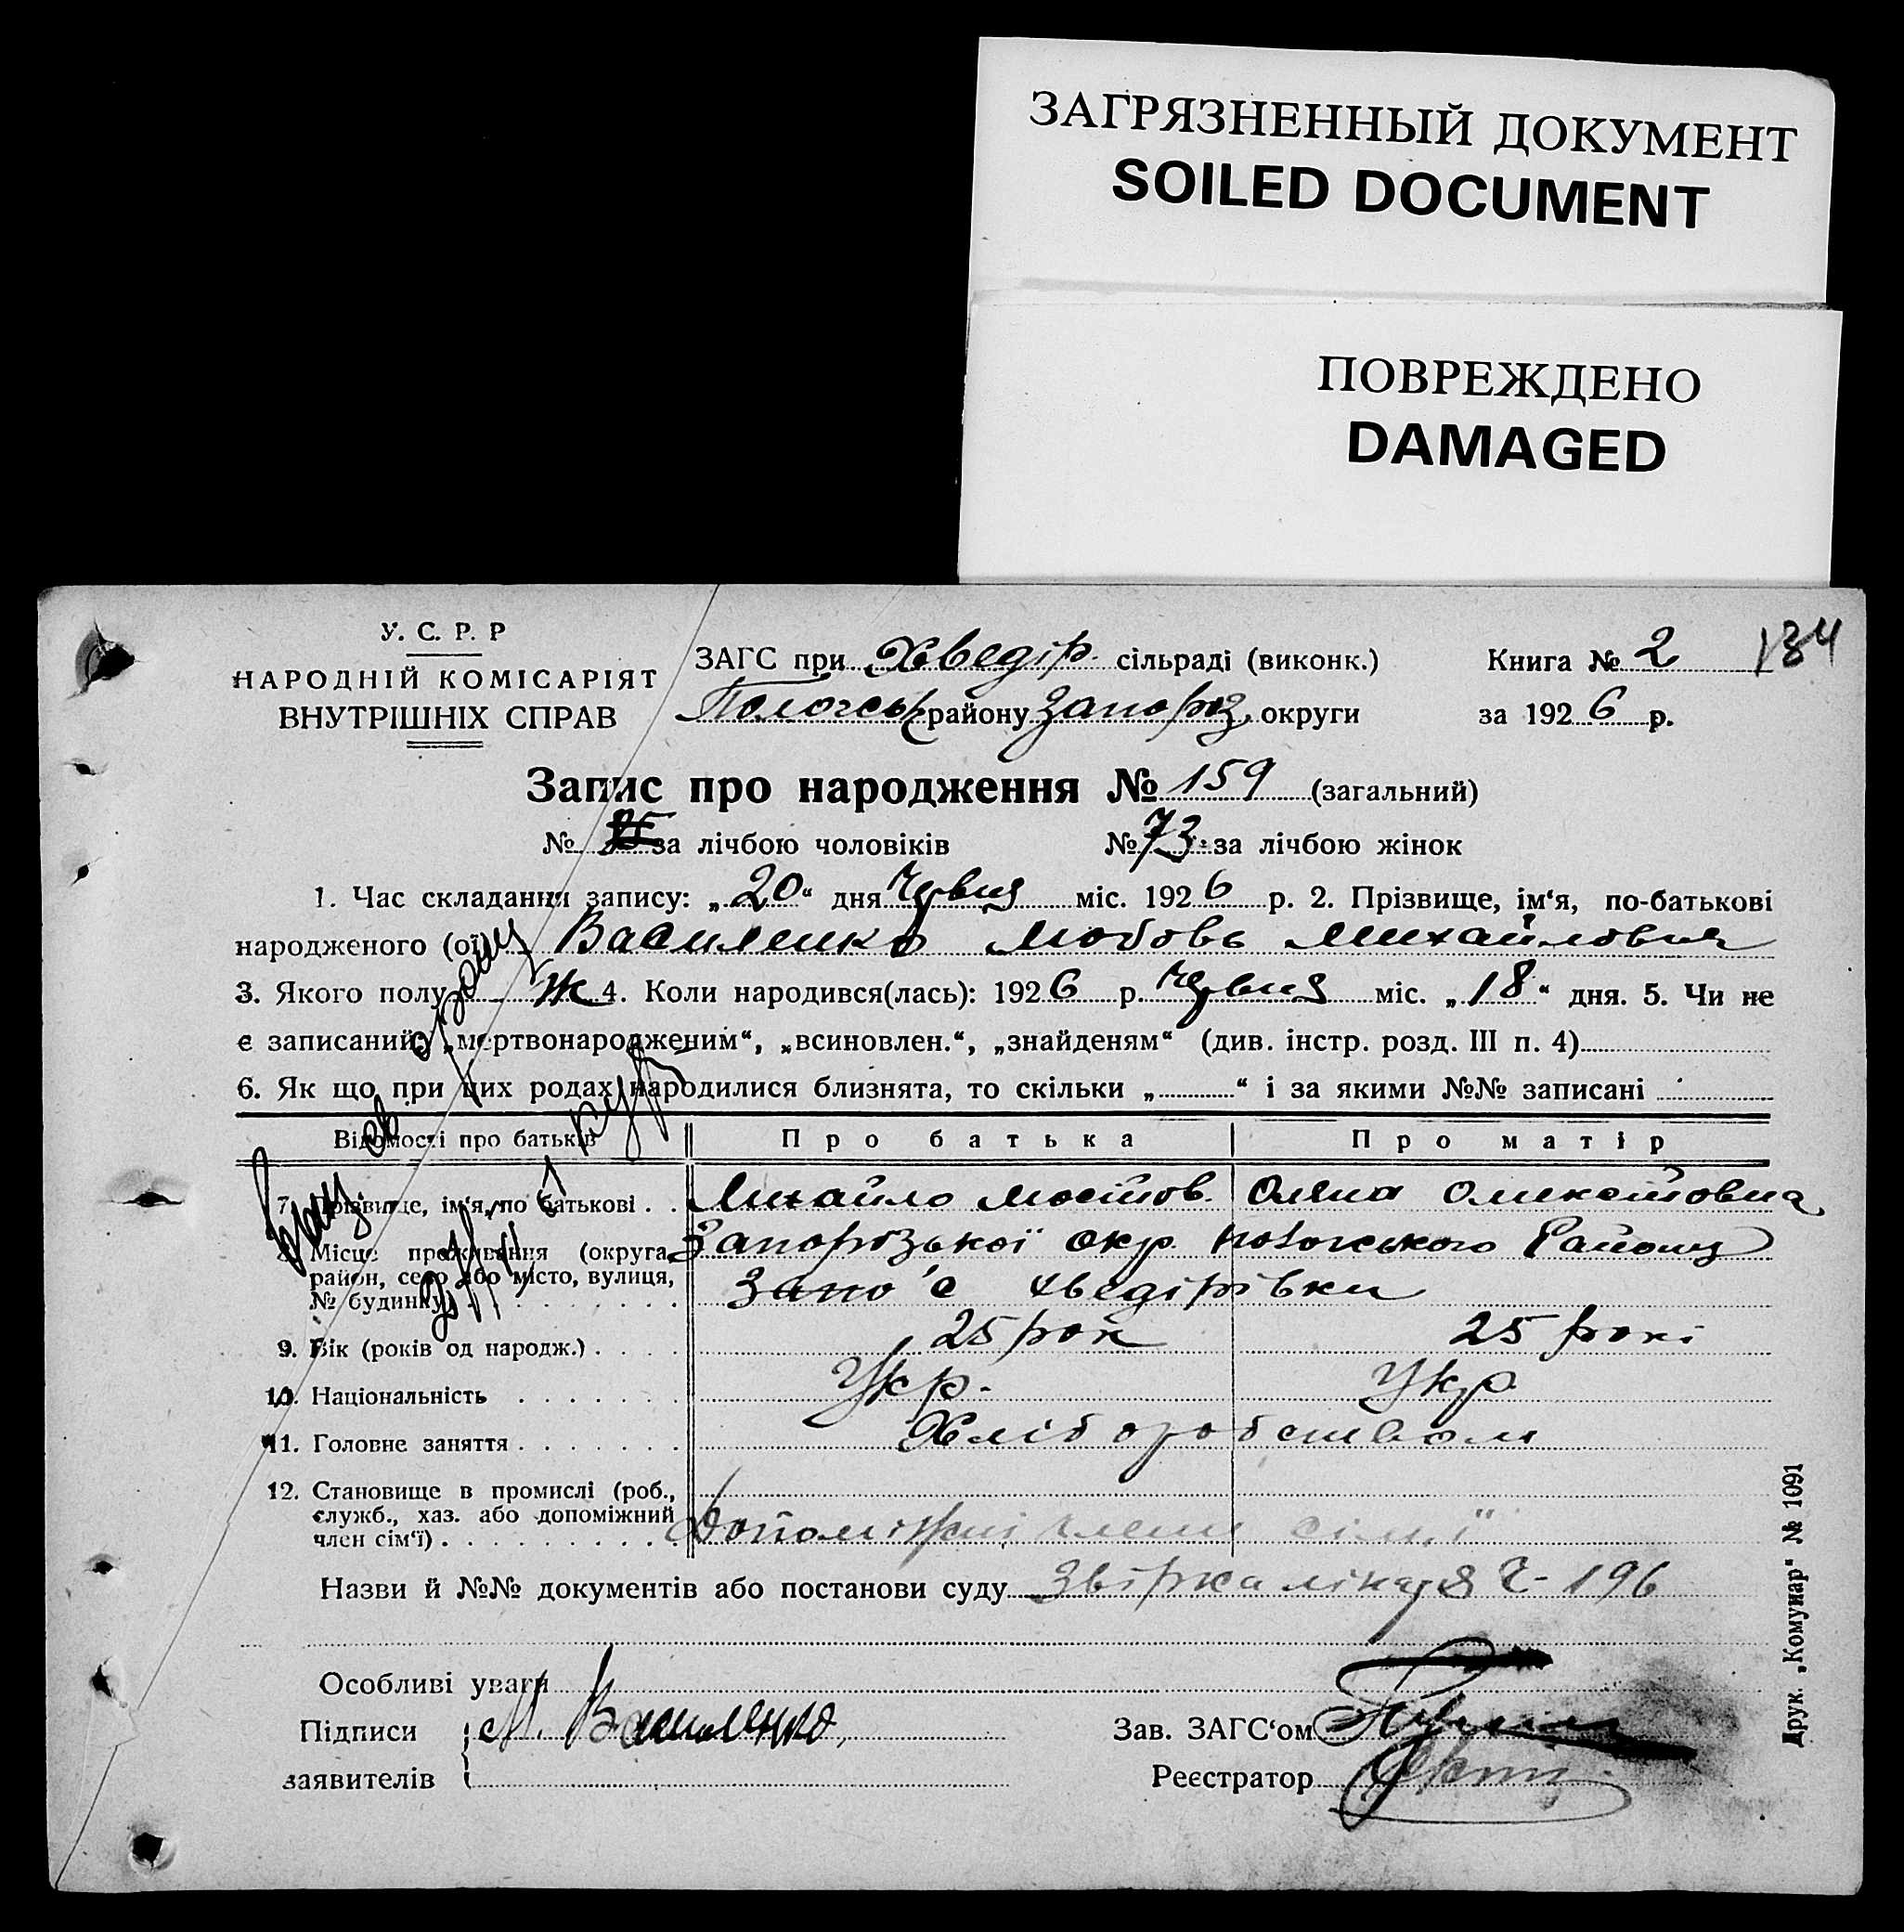 ЗАГРЯЗНЕННЫЙ ДОКУМЕНТ
SOILED DOCUMENT
ПОВРЕЖДЕНО
DAMAGED
У. С. Р. Р
НАРОДНІЙ КОМІСАРІЯТ
ВНУТРІШНІХ СПРАВ
ЗАГС при Хведір. сільраді (виконк.) Книга № 2 184
Пологськ району Запоріз. округи за 1926 р.
Запис про народження № 159 (загальний)
№ за лічбою чоловіків № 73 за лічбою жінок
1. Час складання запису: „20“ дня Червня міс. 1926 р. 2. Прізвище, ім‘я, по-батькові
народженого (ої) Василенко Любовь Михайловна
3. Якого полу Ж 4. Коли народився(лась): 1926 р. Червня міс. „18“ дня. 5. Чи не
є записаний: „мертвонародженим“, „всиновлен.“, „знайденям“ (див. інстр. розд. III п. 4)
6. Як що при цих родах народилися близнята, то скільки „ “ і за якими №№ записані
Відомості про батьків Про батька Про матір
7. Прізвище, ім‘я, по батькові Михайло Олексіовна
8. Місце проживання (округа, район, село або місто, вулиця, № будинку) Запорізької окр. Пологського Району
Запо с Хведірівки
9. Вік (років од народж.) 25 рок 25 рокі
10. Національність Укр. Укр
11. Головне заняття Хліборобством
12. Становище в промислі (роб.,
служб., хаз. або допоміжний
член сім‘ї) Допоміжні члени сімї
Назви й №№ документів або постанови суду 196
Особливі уваги
Підписи М. Василенко Зав. ЗАГС‘ом
заявителів Реєстратор
Друк. „Комунар“ № 1091